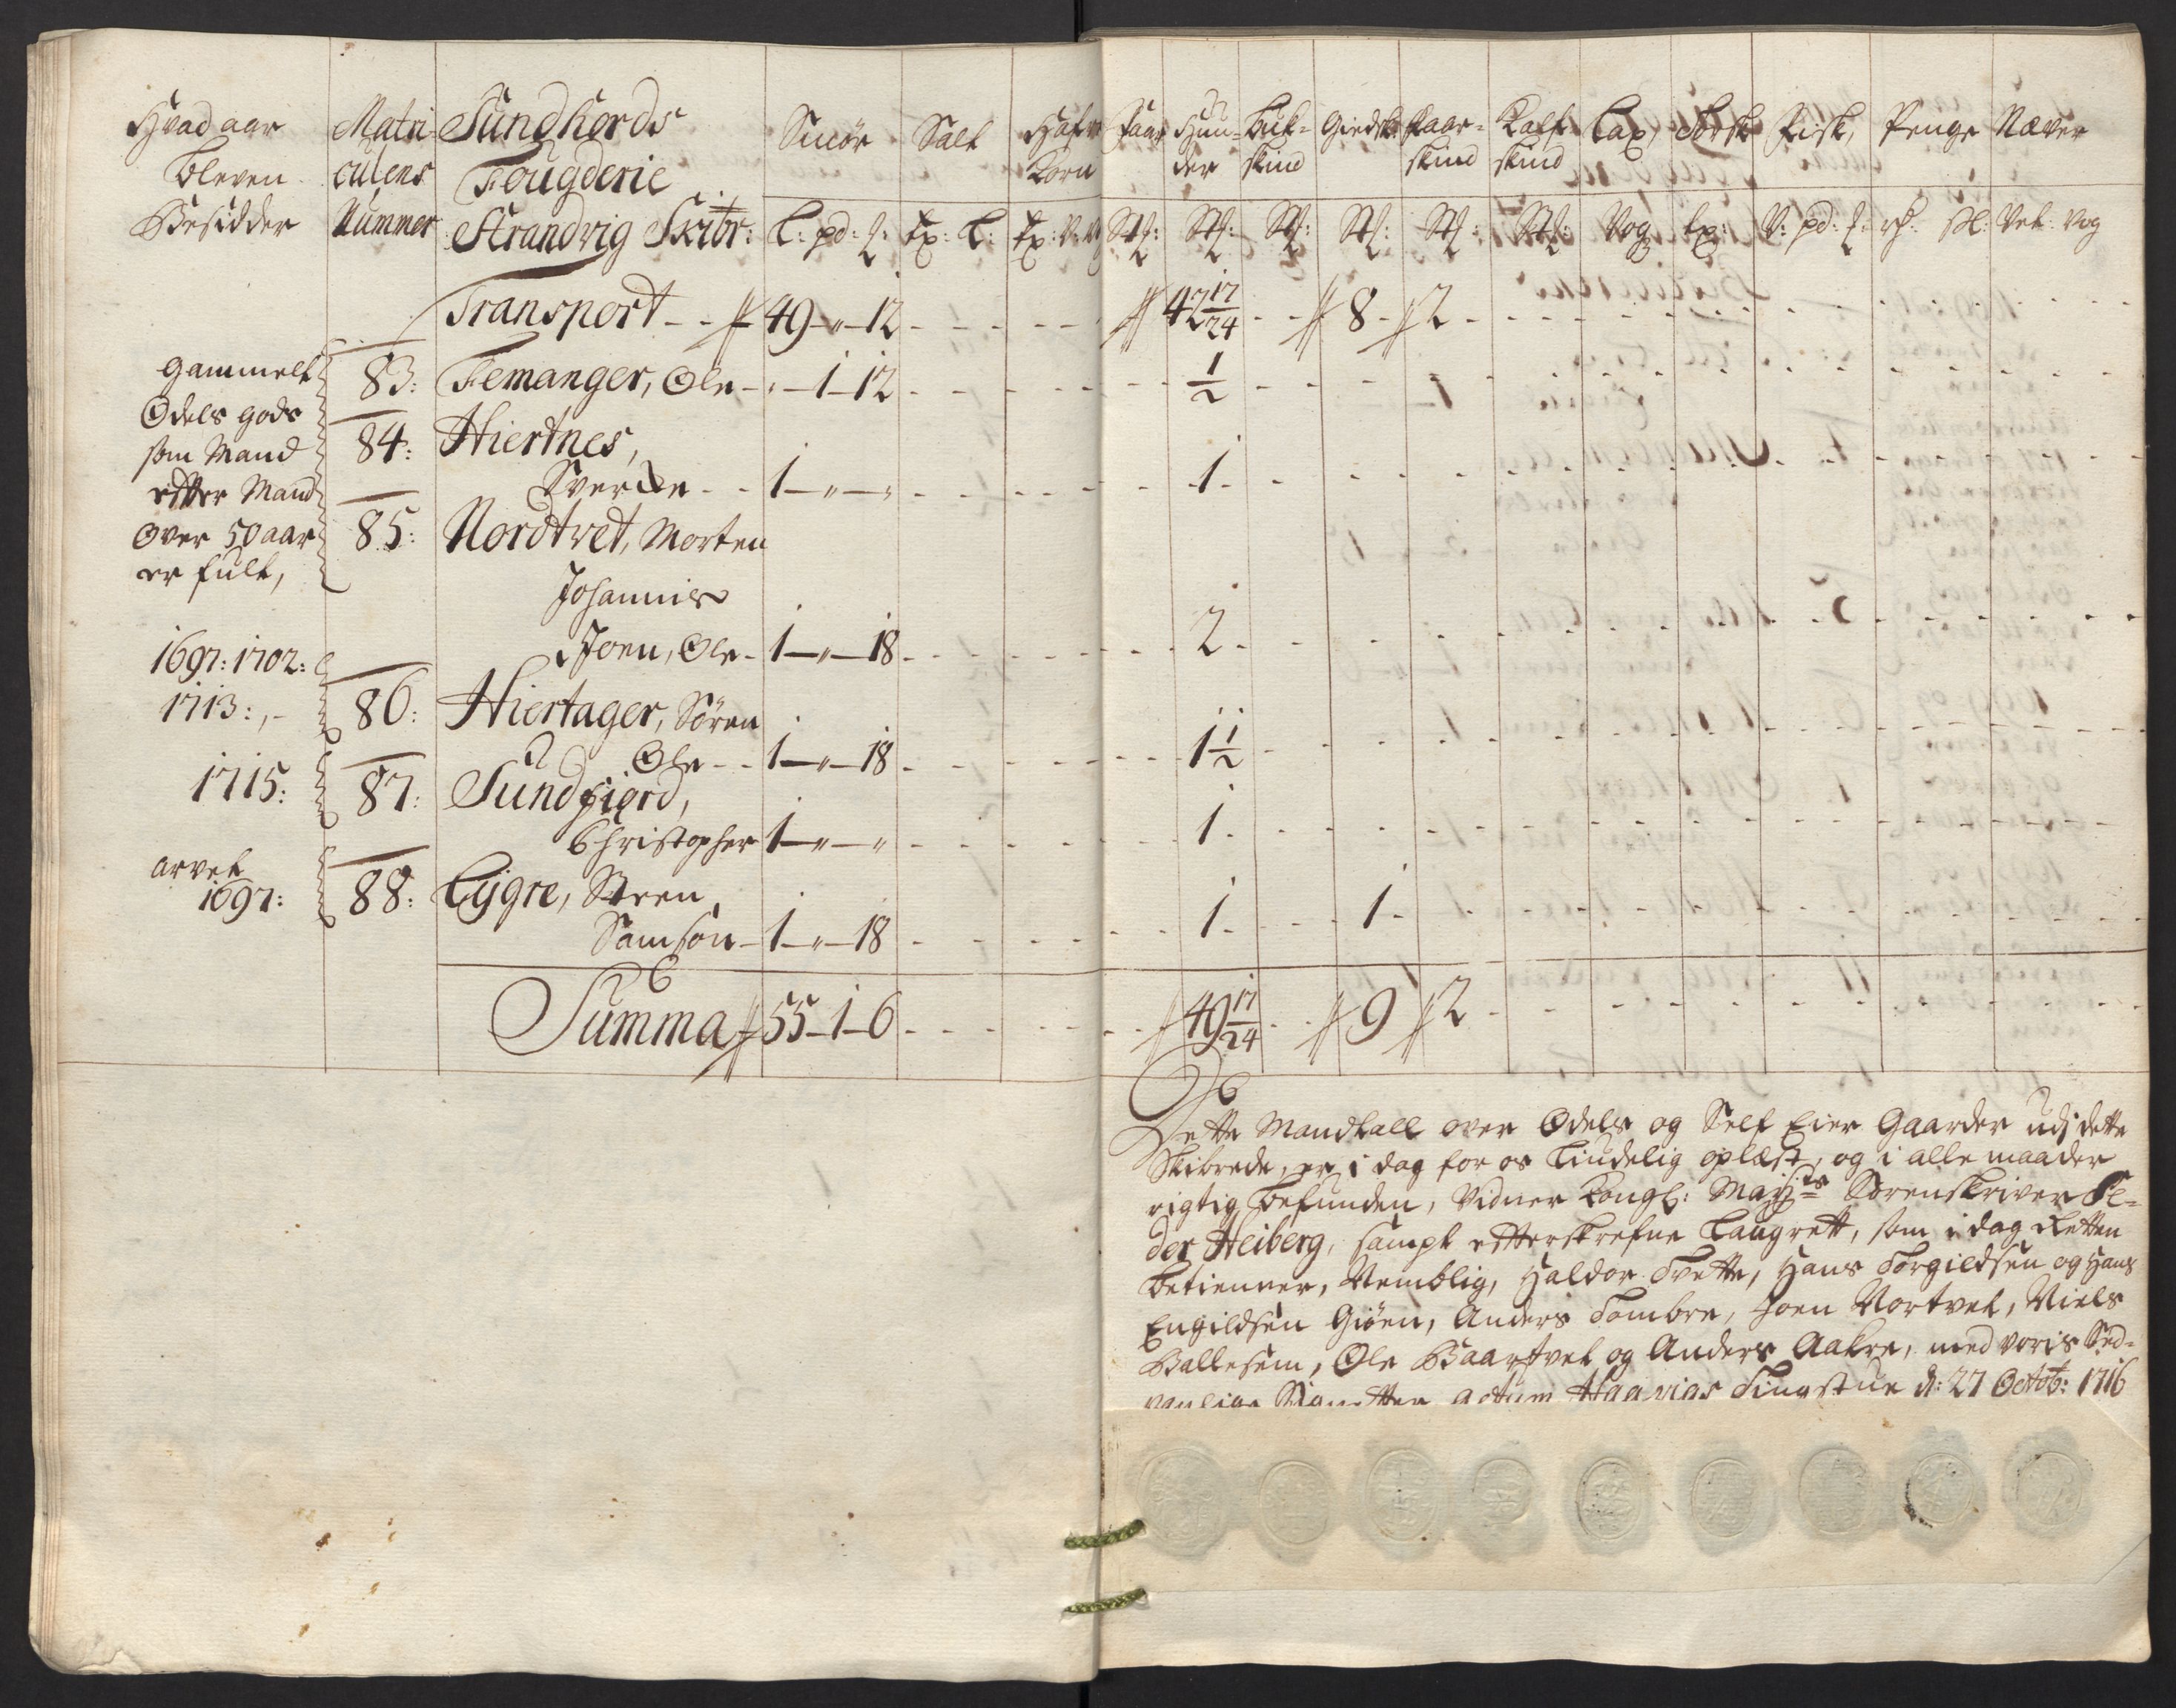 Hvad aar
bleven
Besidder
Matri-
culens
Nummer
Sundhords
Fougderie
Strandvig Skibr:
Smör
L: pd: 
Salt
Tp: L:
Hafr
Korn
Tp: V:
Faar
Stf:
Huu-
der
Stf:
Buk-
skind
Stf:
Giedsk:
Stf:
Faar-
skind
Stf:
Kalf
skind
Stf:
Lax,
Vog
Torsk
tp:
Fisk,
V: pd:
Penge
sl:
Næver
Vet: Vog
Transport - - 49 - " - 12 - - - 42 17/24 - - 8 - 2 - - -
gammelt
Odels gods
som Mand
efter Mand
over 50 aar
er fult,
83: Femanger, Ole - " - 1 - 12 - - - 1/2 - - -
84: Hiertnes,
Sverke - - 1 - " - " - - - 1 - - -
85: Nordtvet, Morten
Johannis
Joen, Ole - 1 - " - 18 - - - 2 - - -
1697: 1702:
1713:,-
86: Hiertager, Sören
Ole - - 1 - " - 18 - - - 1 1/2 - - -
1715:
87: Sundfiord,
Christopher 1 - " - " - - - 1 - - -
arvet
1697:
88: Lygre, Steen
Samson - 1 - " - 18 - - - 1 - - - 1 - - -
Summa 55 - 1 - 6 - - - 49 17/24 - - 9 2 - - -
Dette Mandtall over Odels og Self Eier Gaarder udj dette
Skibrede, er i dag for os tiudelig oplæst, og i alle maader
rigtig befunden, Vidner Kongl: Mayts Sorenskriver Pe-
der Heiberg, sampt efterskrefne Laugrett, som i dag Retten
betienner, Nemblig, Haldor Tvette, Hans Torgildsen og Hans
Engildsen Giöen, Anders Tombre, Joen Nortvet, Niels
Ballesem, Ole Baartvet og Anders Aakre, med voris Sæd-
vanlige Signetter Actum Haavigs Tingstue d: 27 Octob: 1716